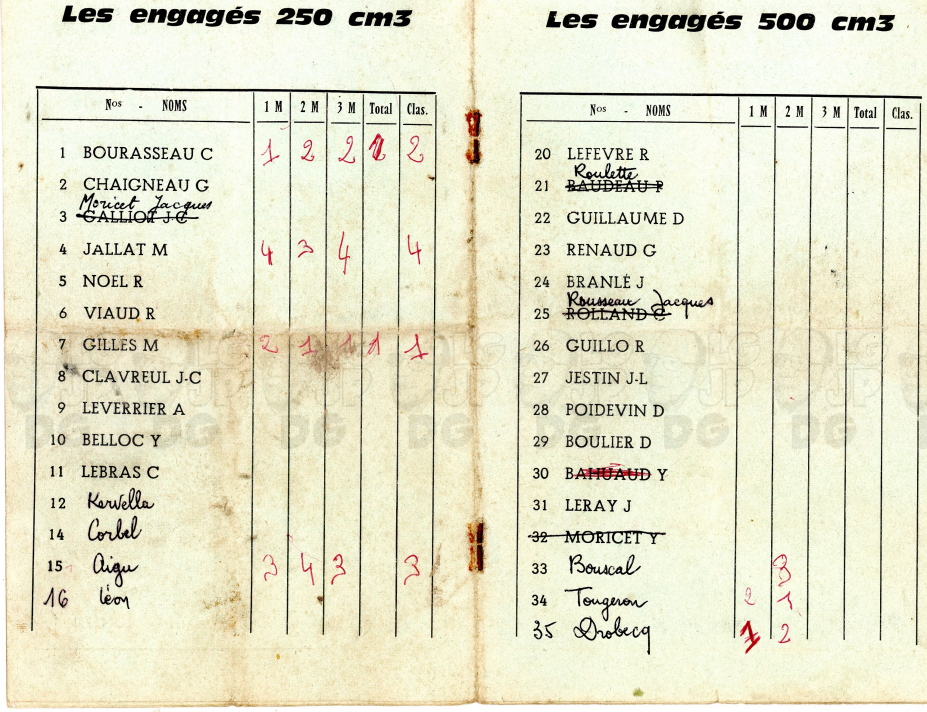 Les engagés 250 cm3
Nos - NOMS 1 M 2 M 3 M Total Clas.
1 BOURASSEAU C 1 2 2 2 2
2 CHAIGNEAU G
Moricet Jacques
3 GALLIOT J-C
4 JALLAT M 4 3 4 4
5 NOEL R
6 VIAUD R
7 GILLES M 2 1 1 1 1
8 CLAVREUL J-C
9 LEVERRIER A
10 BELLOC Y
11 LEBRAS C
12 Kervella
14 Corbel
15 Aigu 3 4 3 3
16 Léon
Les engagés 500 cm3
Nos - NOMS 1 M 2 M 3 M Total Clas.
20 LEFEVRE R
Roulette
21 BAUDEAU P
22 GUILLAUME D
23 RENAUD G
24 BRANLÉ J
Rousseau Jacques
25 ROLLAND C
26 GUILLO R
27 JESTIN J-L
28 POIDEVIN D
29 BOULIER D
30 BAHUAUD Y
31 LERAY J
32 MORICET Y
33 Bouscal 3
34 Tougeron 2 1
35 Drobecq 1 2